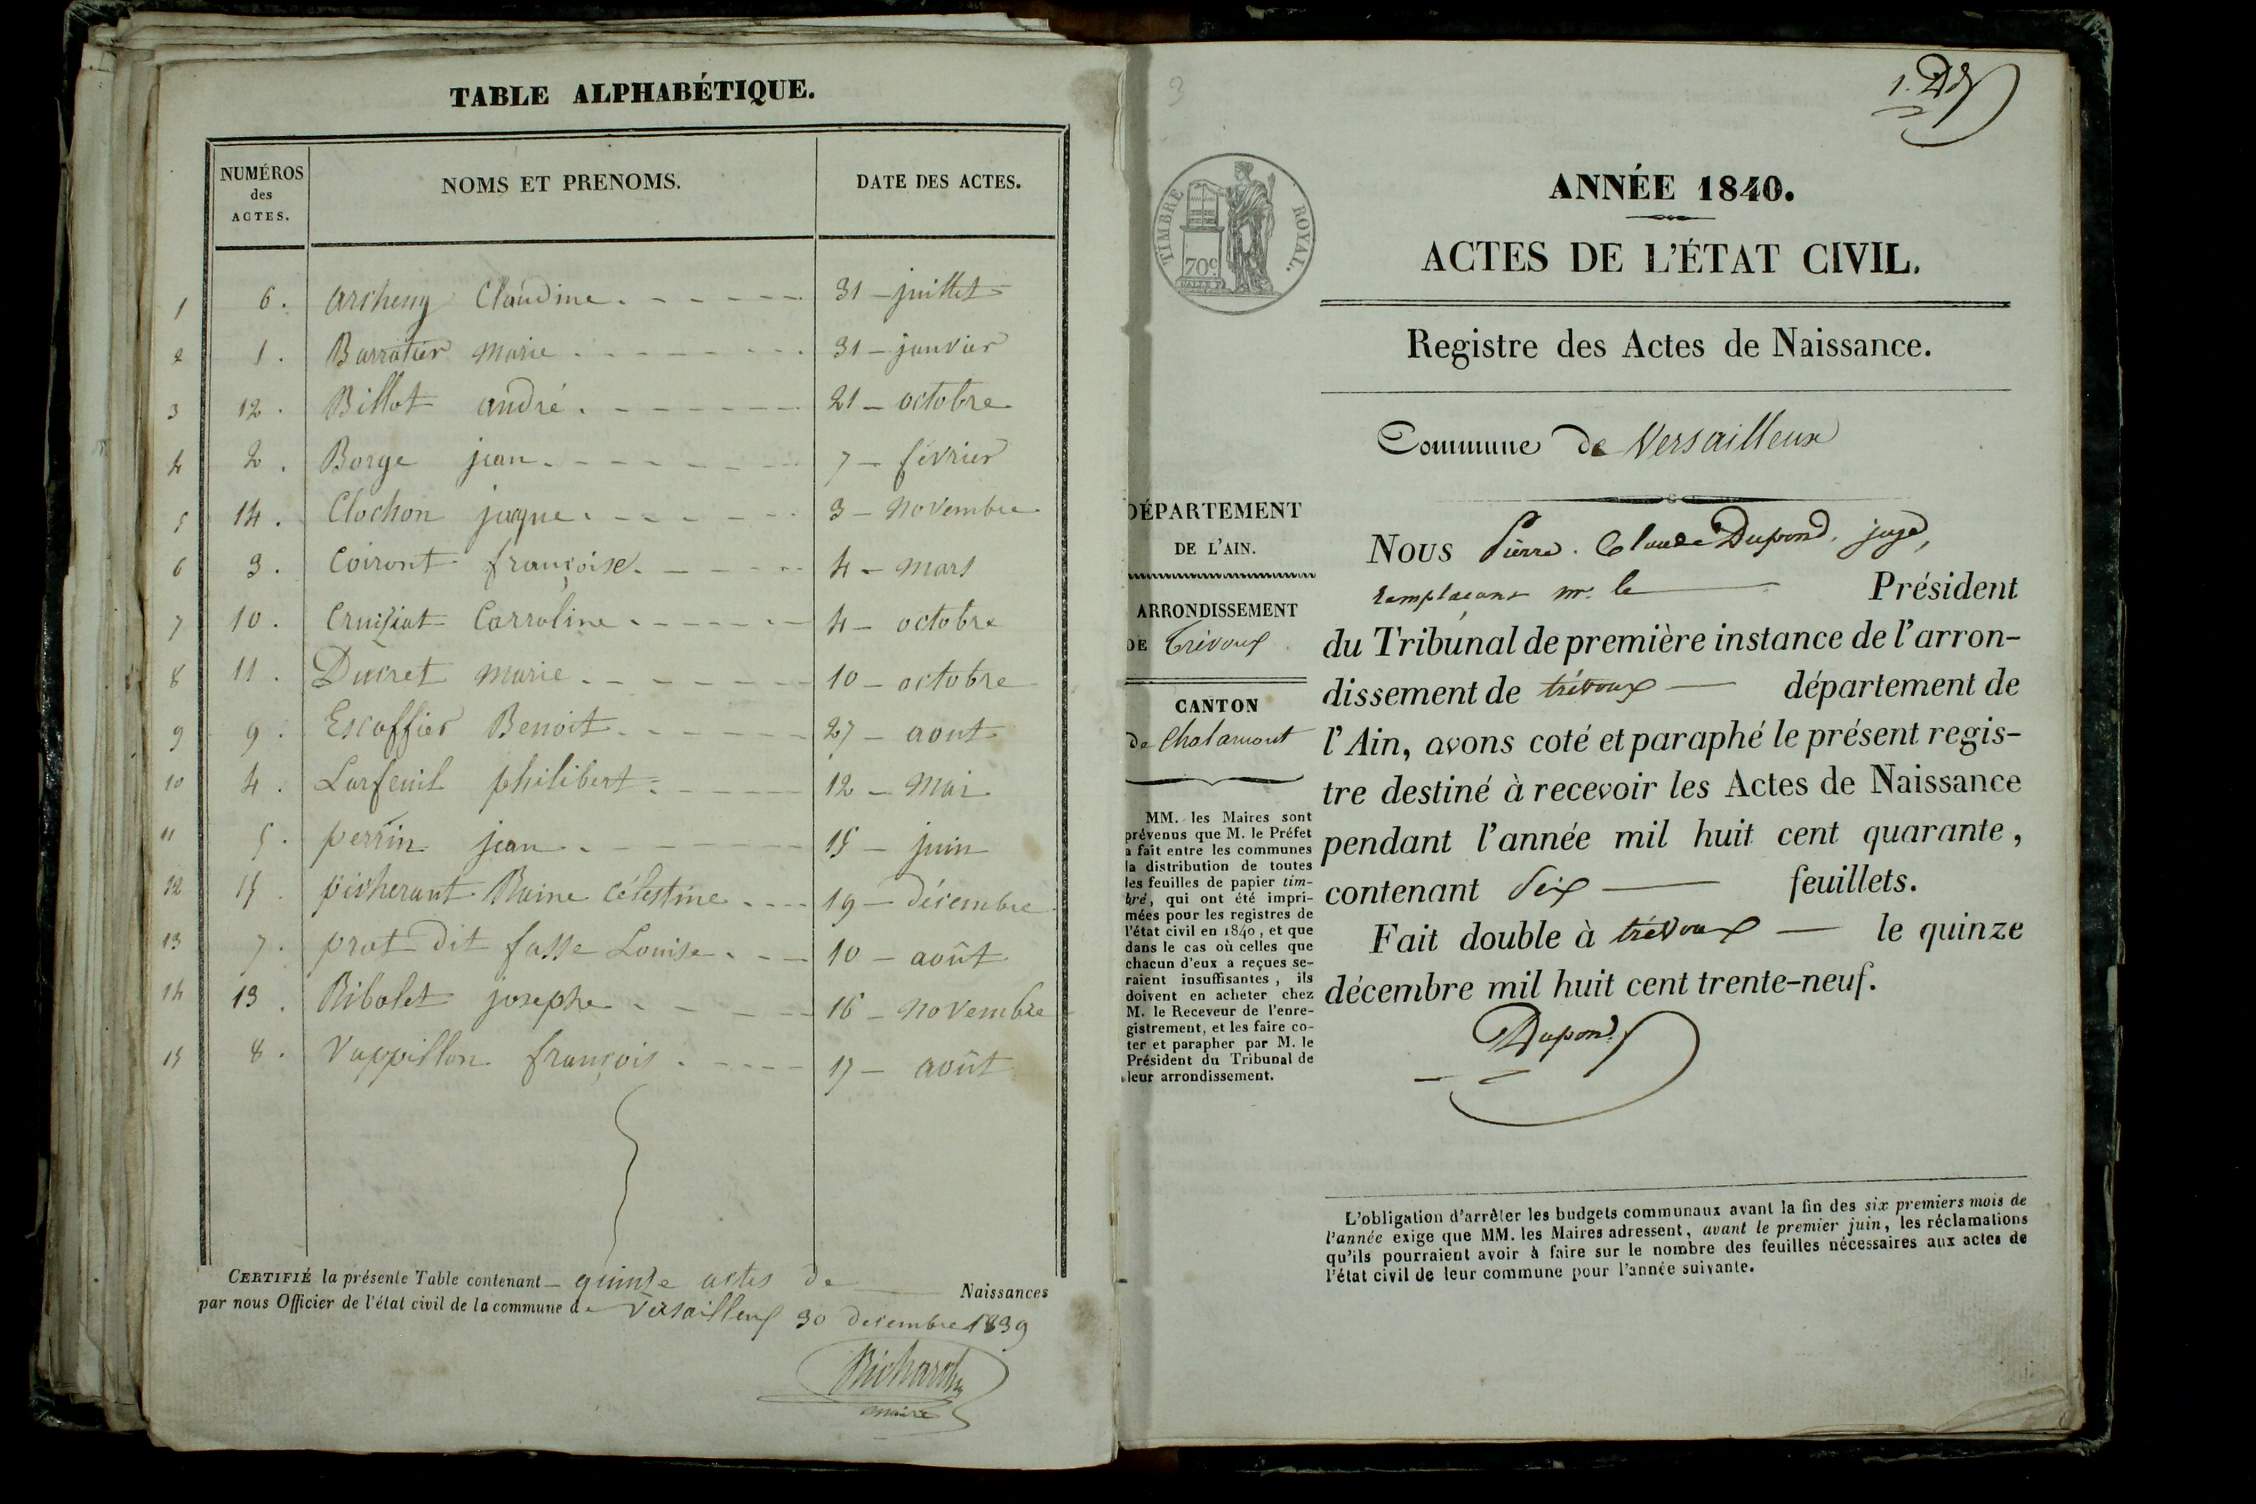 TABLE ALPHABÉTIQUE.
NUMÉROS des ACTES. NOMS ET PRENOMS. DATE DES ACTES.
1 6. Archeny Claudine 31 – juillet
2 1. Barratier marie 31 – janvier
3 12. Billot andré 21 – octobre
4 2. Borge jean 7 – février
5 14. Clochon jaque 3 – novembre
6 3. Coiront françoise 4 – mars
7 10. Cruiziat Carroline 4 – octobre
8 11. Ducret marie 10 – octobre
9 9. Escoffier Benoit 27 – aout
10 4. Larfeuil philibert 12 – mai
11 5. perrin jean 15 – juin
12 15. picherant Raine célestine 19 – décembre
13 7. prat dit fasse Louise 10 – août
14 13. Ribolet josephe 16 – novembre
15 8. Vappillon françois 17 – août
CERTIFIÉ la présente Table contenant quinze actes de Naissances
par nous Officier de l'état civil de la commune de Versailleux 30 decembre 1839
Richard
maire
3
1.
TIMBRE ROYAL.
70c
ANNÉE 1840.
ACTES DE L'ÉTAT CIVIL.
Registre des Actes de Naissance.
Commune de Versailleux
DÉPARTEMENT
DE L'AIN.
ARRONDISSEMENT
DE Trévoux
CANTON
de Chalamont
MM. les Maires sont
prévenus que M. le Préfet
a fait entre les communes
la distribution de toutes
les feuilles de papier tim-
bré, qui ont été impri-
mées pour les registres de
l'état civil en 1840, et que
dans le cas où celles que
chacun d'eux a reçues se-
raient insuffisantes, ils
doivent en acheter chez
M. le Receveur de l'enre-
gistrement, et les faire co-
ter et parapher par M. le
Président du Tribunal de
leur arrondissement.
NOUS Pierre. Claude Dupond, juge,
remplaçant mr. le Président
du Tribunal de première instance de l'arron-
dissement de trévoux département de
l'Ain, avons coté et paraphé le présent regis-
tre destiné à recevoir les Actes de Naissance
pendant l'année mil huit cent quarante,
contenant six feuillets.
Fait double à trévoux le quinze
décembre mil huit cent trente-neuf.
Dupond
L'obligation d'arrêter les budgets communaux avant la fin des six premiers mois de
l'année exige que MM. les Maires adressent, avant le premier juin, les réclamations
qu'ils pourraient avoir à faire sur le nombre des feuilles nécessaires aux actes de
l'état civil de leur commune pour l'année suivante.